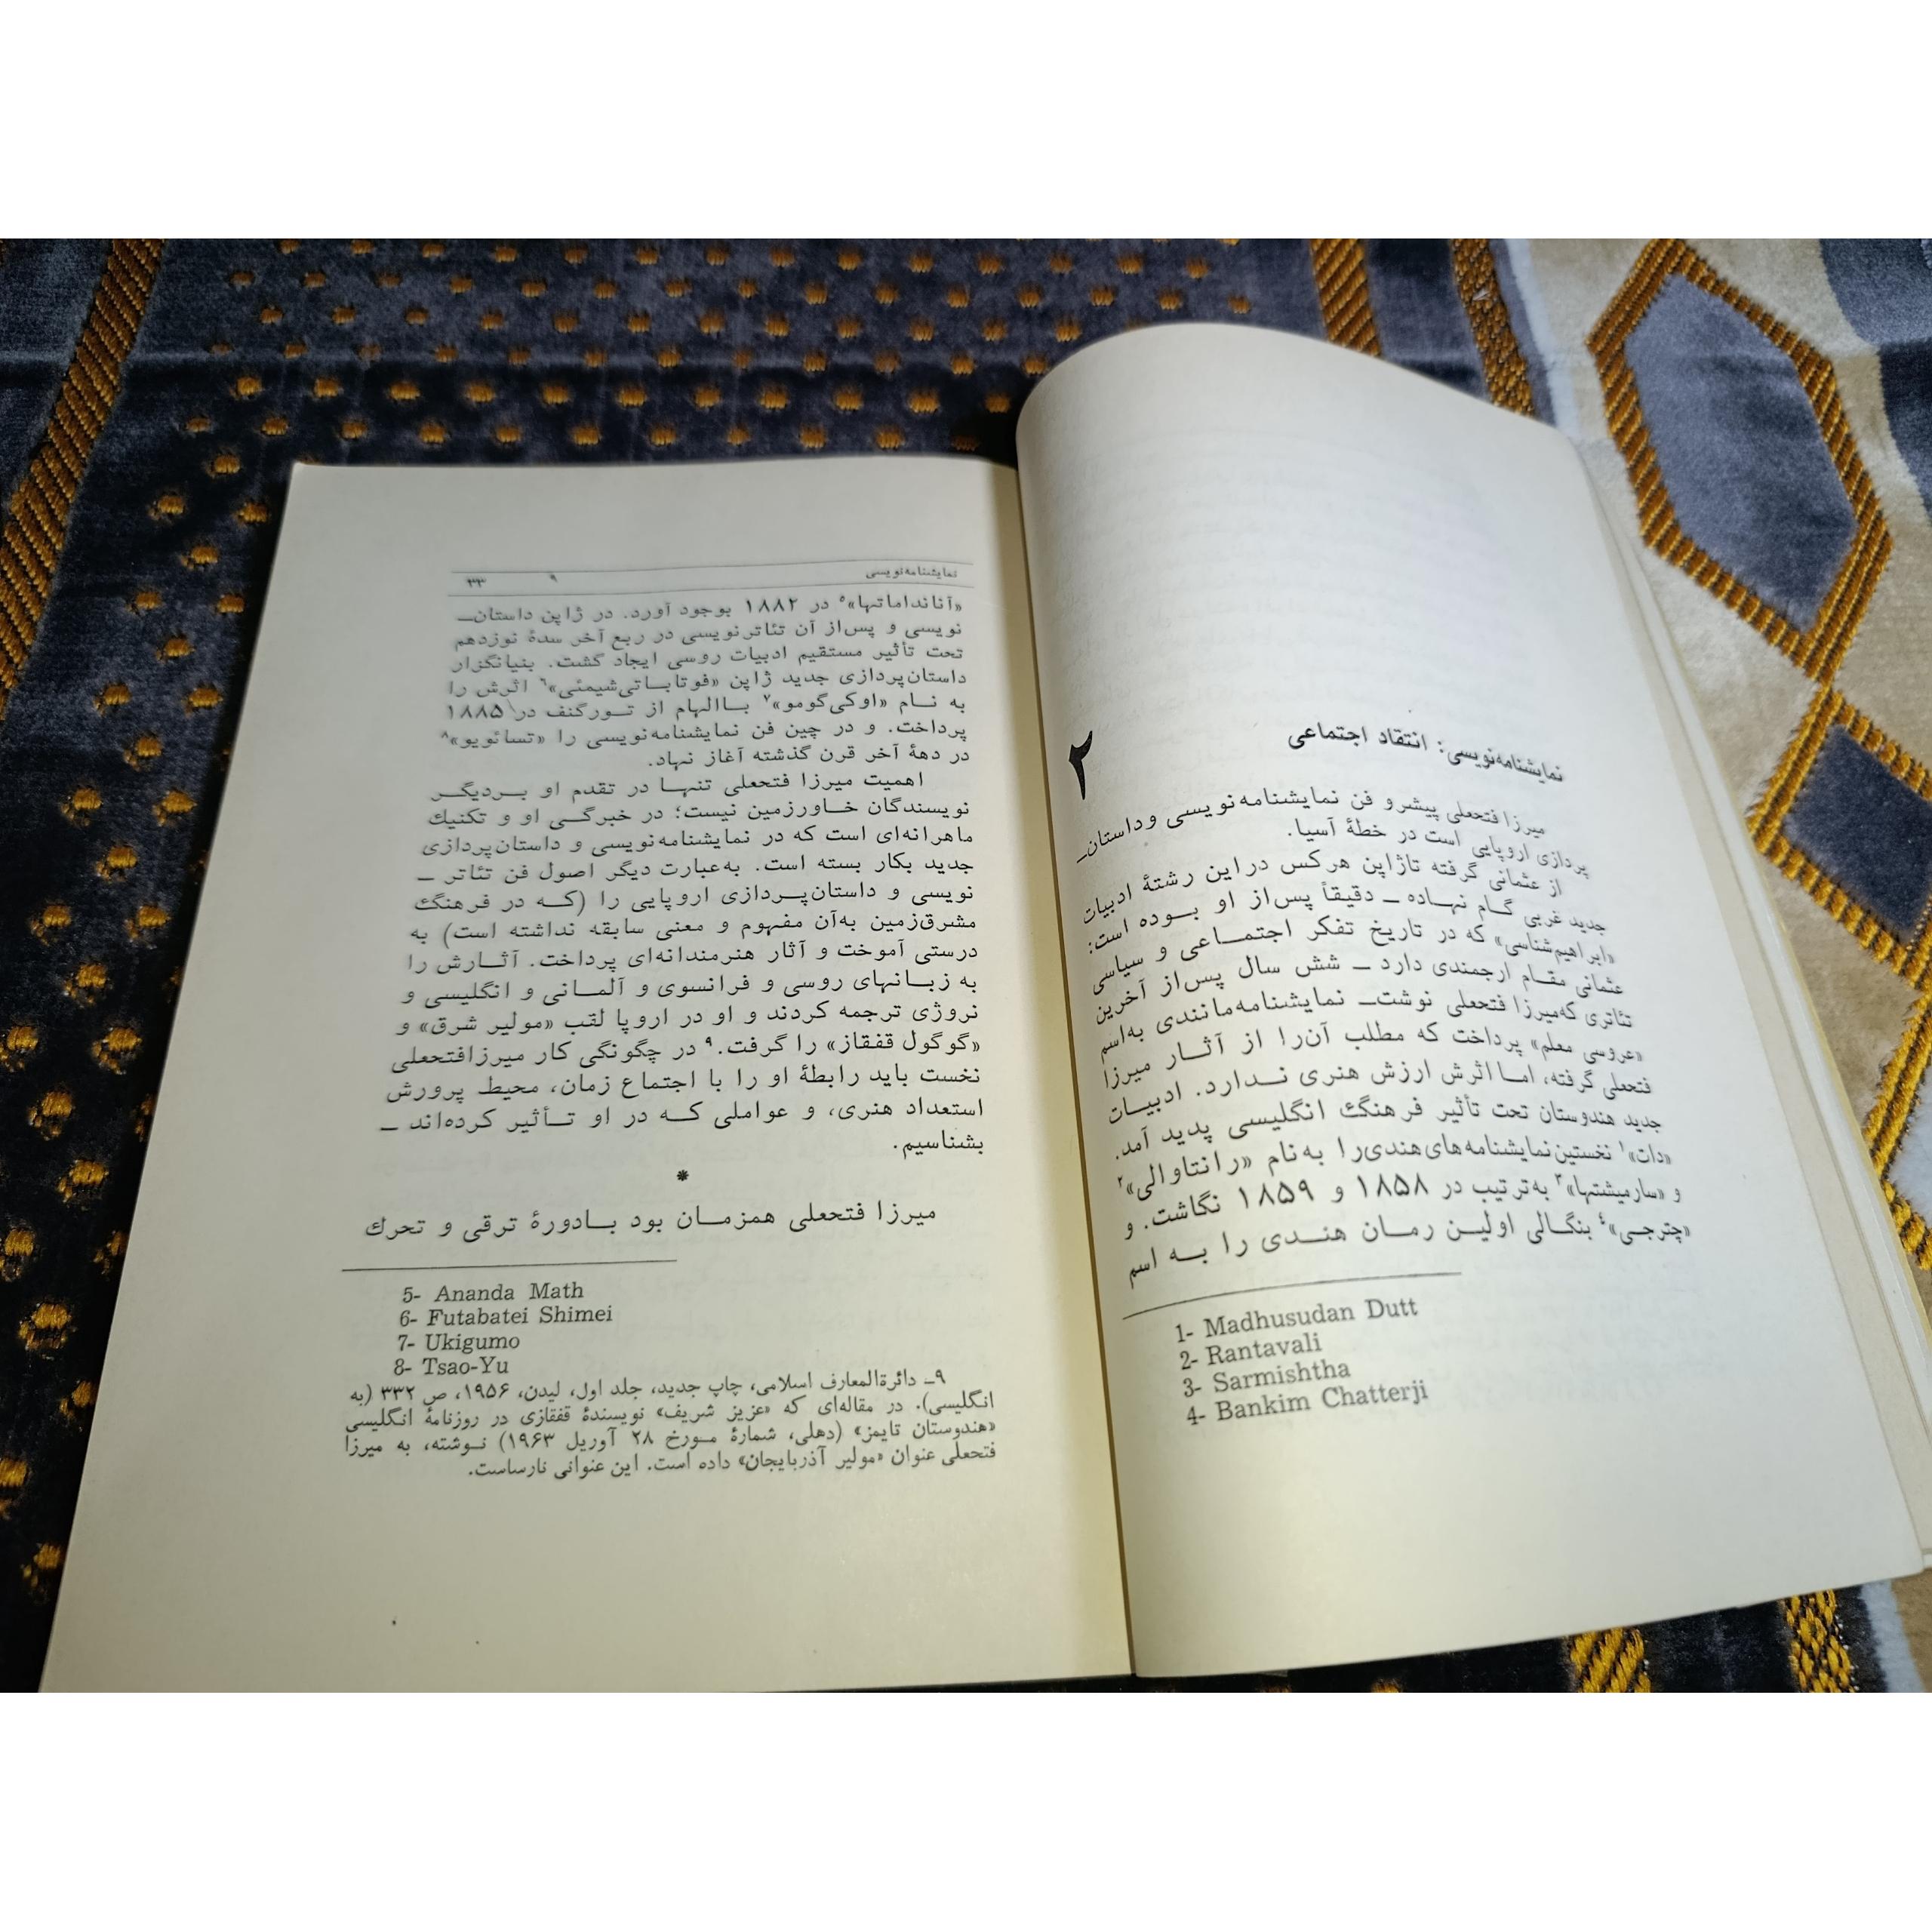 ۲
نمایشنامه‌نویسی: انتقاد اجتماعی
میرزا فتحعلی پیشرو فن نمایشنامه‌نویسی و داستان‌ـ
پردازی اروپایی است در خطهٔ آسیا.
از عثمانی گرفته تا ژاپن هرکس در این رشتهٔ ادبیات
جدید غربی گام نهاده ـ دقیقاً پس‌از او بوده است:
«ابراهیم‌شناسی» که در تاریخ تفکر اجتماعی و سیاسی
عثمانی مقام ارجمندی دارد ـ شش سال پس‌از آخرین
تئاتری که‌میرزا فتحعلی نوشت‌ـ نمایشنامه‌مانندی به‌اسم
«عروسی معلم» پرداخت که مطلب آن‌را از آثار میرزا
فتحعلی گرفته، اما اثرش ارزش هنری ندارد. ادبیات
جدید هندوستان تحت تأثیر فرهنگ انگلیسی پدید آمد.
«دات»۱ نخستین نمایشنامه‌های هندی‌را به‌نام «رانتاوالی»۲
و «سارمیشتها»۳ به‌ترتیب در ۱۸۵۸ و ۱۸۵۹ نگاشت. و
«چترجی»۴ بنگالی اولین رمان هندی را به اسم
1- Madhusudan Dutt
2- Rantavali
3- Sarmishtha
4- Bankim Chatterji
نمایشنامه‌نویسی ۹ ۳۳
«آنانداماتها»۵ در ۱۸۸۲ بوجود آورد. در ژاپن داستان‌ـ
نویسی و پس‌از آن تئاترنویسی در ربع آخر سدهٔ نوزدهم
تحت تأثیر مستقیم ادبیات روسی ایجاد گشت. بنیانگزار
داستان‌پردازی جدید ژاپن «فوتاباتی‌شیمئی»۶ اثرش را
به نام «اوکی‌گومو»۷ باالهام از تورگنف در ۱۸۸۵
پرداخت. و در چین فن نمایشنامه‌نویسی را «تسائویو»۸
در دههٔ آخر قرن گذشته آغاز نهاد.
اهمیت میرزا فتحعلی تنها در تقدم او بردیگر
نویسندگان خاورزمین نیست؛ در خبرگی او و تکنیك
ماهرانه‌ای است که در نمایشنامه‌نویسی و داستان‌پردازی
جدید بکار بسته است. به‌عبارت دیگر اصول فن تئاتر ـ
نویسی و داستان‌پردازی اروپایی را (که در فرهنگ
مشرق‌زمین به‌آن مفهوم و معنی سابقه نداشته است) به
درستی آموخت و آثار هنرمندانه‌ای پرداخت. آثارش را
به زبانهای روسی و فرانسوی و آلمانی و انگلیسی و
نروژی ترجمه کردند و او در اروپا لقب «مولیر شرق» و
«گوگول قفقاز» را گرفت.۹ در چگونگی کار میرزافتحعلی
نخست باید رابطهٔ او را با اجتماع زمان، محیط پرورش
استعداد هنری، و عواملی که در او تأثیر کرده‌اند ـ
بشناسیم.
*
میرزا فتحعلی همزمان بود بادورهٔ ترقی و تحرك
5- Ananda Math
6- Futabatei Shimei
7- Ukigumo
8- Tsao-Yu
۹ـ دائرةالمعارف اسلامی، چاپ جدید، جلد اول، لیدن، ۱۹۵۶، ص ۳۳۲ (به
انگلیسی). در مقاله‌ای که «عزیز شریف» نویسندهٔ قفقازی در روزنامهٔ انگلیسی
«هندوستان تایمز» (دهلی، شمارهٔ مورخ ۲۸ آوریل ۱۹۶۳) نوشته، به میرزا
فتحعلی عنوان «مولیر آذربایجان» داده است. این عنوانی نارساست.